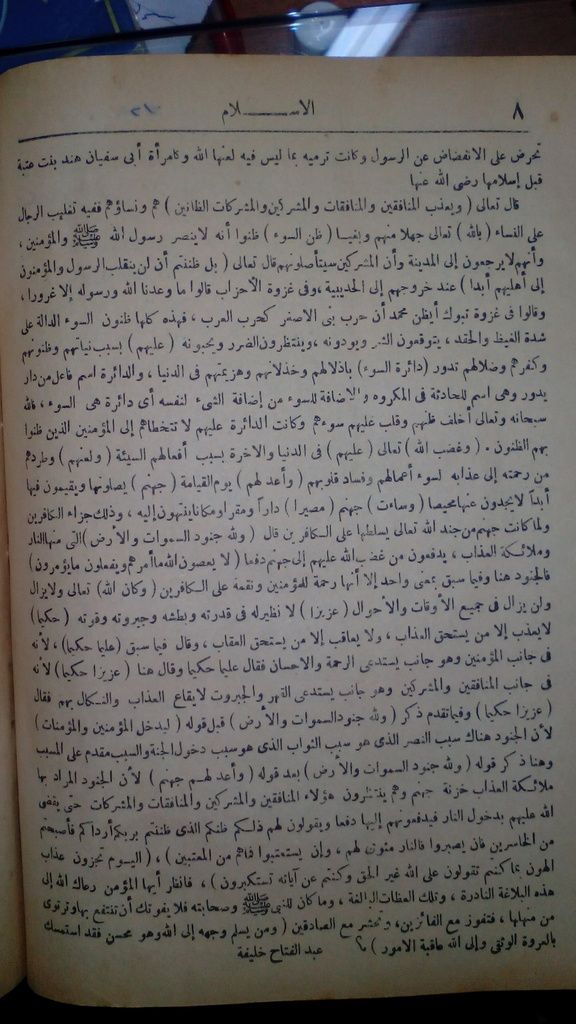 ٨ الاســـلام
تحرض على الانفضاض عن الرسول وكانت ترميه بما ليس فيه لعنها الله وكامرأة أبى سفيان هند بنت عتبة
قبل إسلامها رضى الله عنها
قال تعالى ( ويعذب المنافقين والمنافقات والمشركين والمشركات الظانين ) هم ونساؤهم ففيه تغليب الرجال
على النساء ( بالله ) تعالى جهلا منهم وبغيا ( ظن السوء ) ظنوا أنه لاينصر رسول الله ﷺ والمؤمنين ،
وأنهم لايرجعون إلى المدينة وأن المشركين سيتأصلونهم قال تعالى ( بل ظننتم أن لن ينقلب الرسول والمؤمنون
إلى أهليهم أبدا ) عند خروجهم إلى الحديبية ، وفى غزوة الأحزاب قالوا ما وعدنا الله ورسوله إلا غرورا ،
وقالوا فى غزوة تبوك أيظن محمد أن حرب بنى الاصفر كحرب العرب ، فهذه كلها ظنون السوء الدالة على
شدة الغيظ والحقد ، يتوقعون الشر ويودونه ، وينتظرون الضرر ويحبونه ( عليهم ) بسبب نياتهم وظنونهم
وكفرهم وضلالهم تدور ( دائرة السوء ) باذلالهم وخذلانهم وهزيمتهم فى الدنيا ، والدائرة اسم فاعل من دار
يدور وهى اسم للحادثة فى المكروه والاضافة للسوء من إضافة الشىء لنفسه أى دائرة هى السوء ، فالله
سبحانه وتعالى أخلف ظنهم وقلب عليهم سوءهم وكانت الدائرة عليهم لا تتخطاهم إلى المؤمنين الذين ظنوا
بهم الظنون . ( وغضب الله ) تعالى ( عليهم ) فى الدنيا والآخرة بسبب أفعالهم السيئة ( ولعنهم ) وطردهم
من رحمته إلى عذابه لسوء أعمالهم وفساد قلوبهم ( وأعد لهم ) يوم القيامة ( جهنم ) يصلونها ويقيمون فيها
أبداً لايجدون عنها محيصا ( وساءت ) جهنم ( مصيرا ) داراً ومقرا ومكانا ينتهون إليه ، وذلك جزاء الكافرين
ولما كانت جهنم من جند الله تعالى يسلطها على الكافرين قال ( ولله جنود السموات والأرض ) التى منها النار
وملائكة العذاب ، يدفعون من غضب الله عليهم إلى جهنم دفعا ( لا يعصون الله ما أمرهم ويفعلون مايؤمرون )
فالجنود هنا وفيما سبق بمعنى واحد إلا أنها رحمة للمؤمنين ونقمة على الكافرين ( وكان الله ) تعالى ولايزال
ولن يزال فى جميع الأوقات والأحوال ( عزيزا ) لا نظير له فى قدرته وبطشه وجبروته وقوته ( حكيما )
لايعذب إلا من يستحق العذاب ، ولا يعاقب إلا من يستحق العقاب ، وقال فيما سبق ( عليما حكيما ) ، لأنه
فى جانب المؤمنين وهو جانب يستدعى الرحمة والاحسان فقال عليما حكيما وقال هنا ( عزيزا حكيما ) لأنه
فى جانب المنافقين والمشركين وهو جانب يستدعى القهر والجبروت لايقاع العذاب والنكال بهم فقال
( عزيزا حكيما ) وفيما تقدم ذكر ( ولله جنود السموات والأرض ) قبل قوله ( ليدخل المؤمنين والمؤمنات )
لأن الجنود هناك سبب النصر الذى هو سبب الثواب الذى هو سبب دخول الجنة والسبب مقدم على المسبب
وهنا ذكر قوله ( ولله جنود السموات والأرض ) بعد قوله ( وأعد لهم جهنم ) لأن الجنود المراد بها
ملائكة العذاب خزنة جهنم وهم ينتظرون هؤلاء المنافقين والمشركين والمنافقات والمشركات حتى يقضى
الله عليهم بدخول النار فيدفعونهم إليها دفعا ويقولون لهم ذلكم ظنكم الذى ظننتم بربكم أرداكم فأصبحتم
من الخاسرين فان يصبروا فالنار مثوى لهم ، وإن يستعتبوا فماهم من المعتبين ) ، ( اليوم تجزون عذاب
الهون بما كنتم تقولون على الله غير الحق وكنتم عن آياته تستكبرون ) ، فانظر أيها المؤمن رعاك الله إلى
هذه البلاغة النادرة ، وتلك العظات البالغة ، وما كان للنبى ﷺ وصحابته فلا يفوتك أن تنتفع بها وترتوى
من منهلها ، فتفوز مع الفائزين ، وتحشر مع الصادقين ( ومن يسلم وجهه إلى الله وهو محسن فقد استمسك
بالعروة الوثقى وإلى الله عاقبة الامور ) عبد الفتاح خليفة